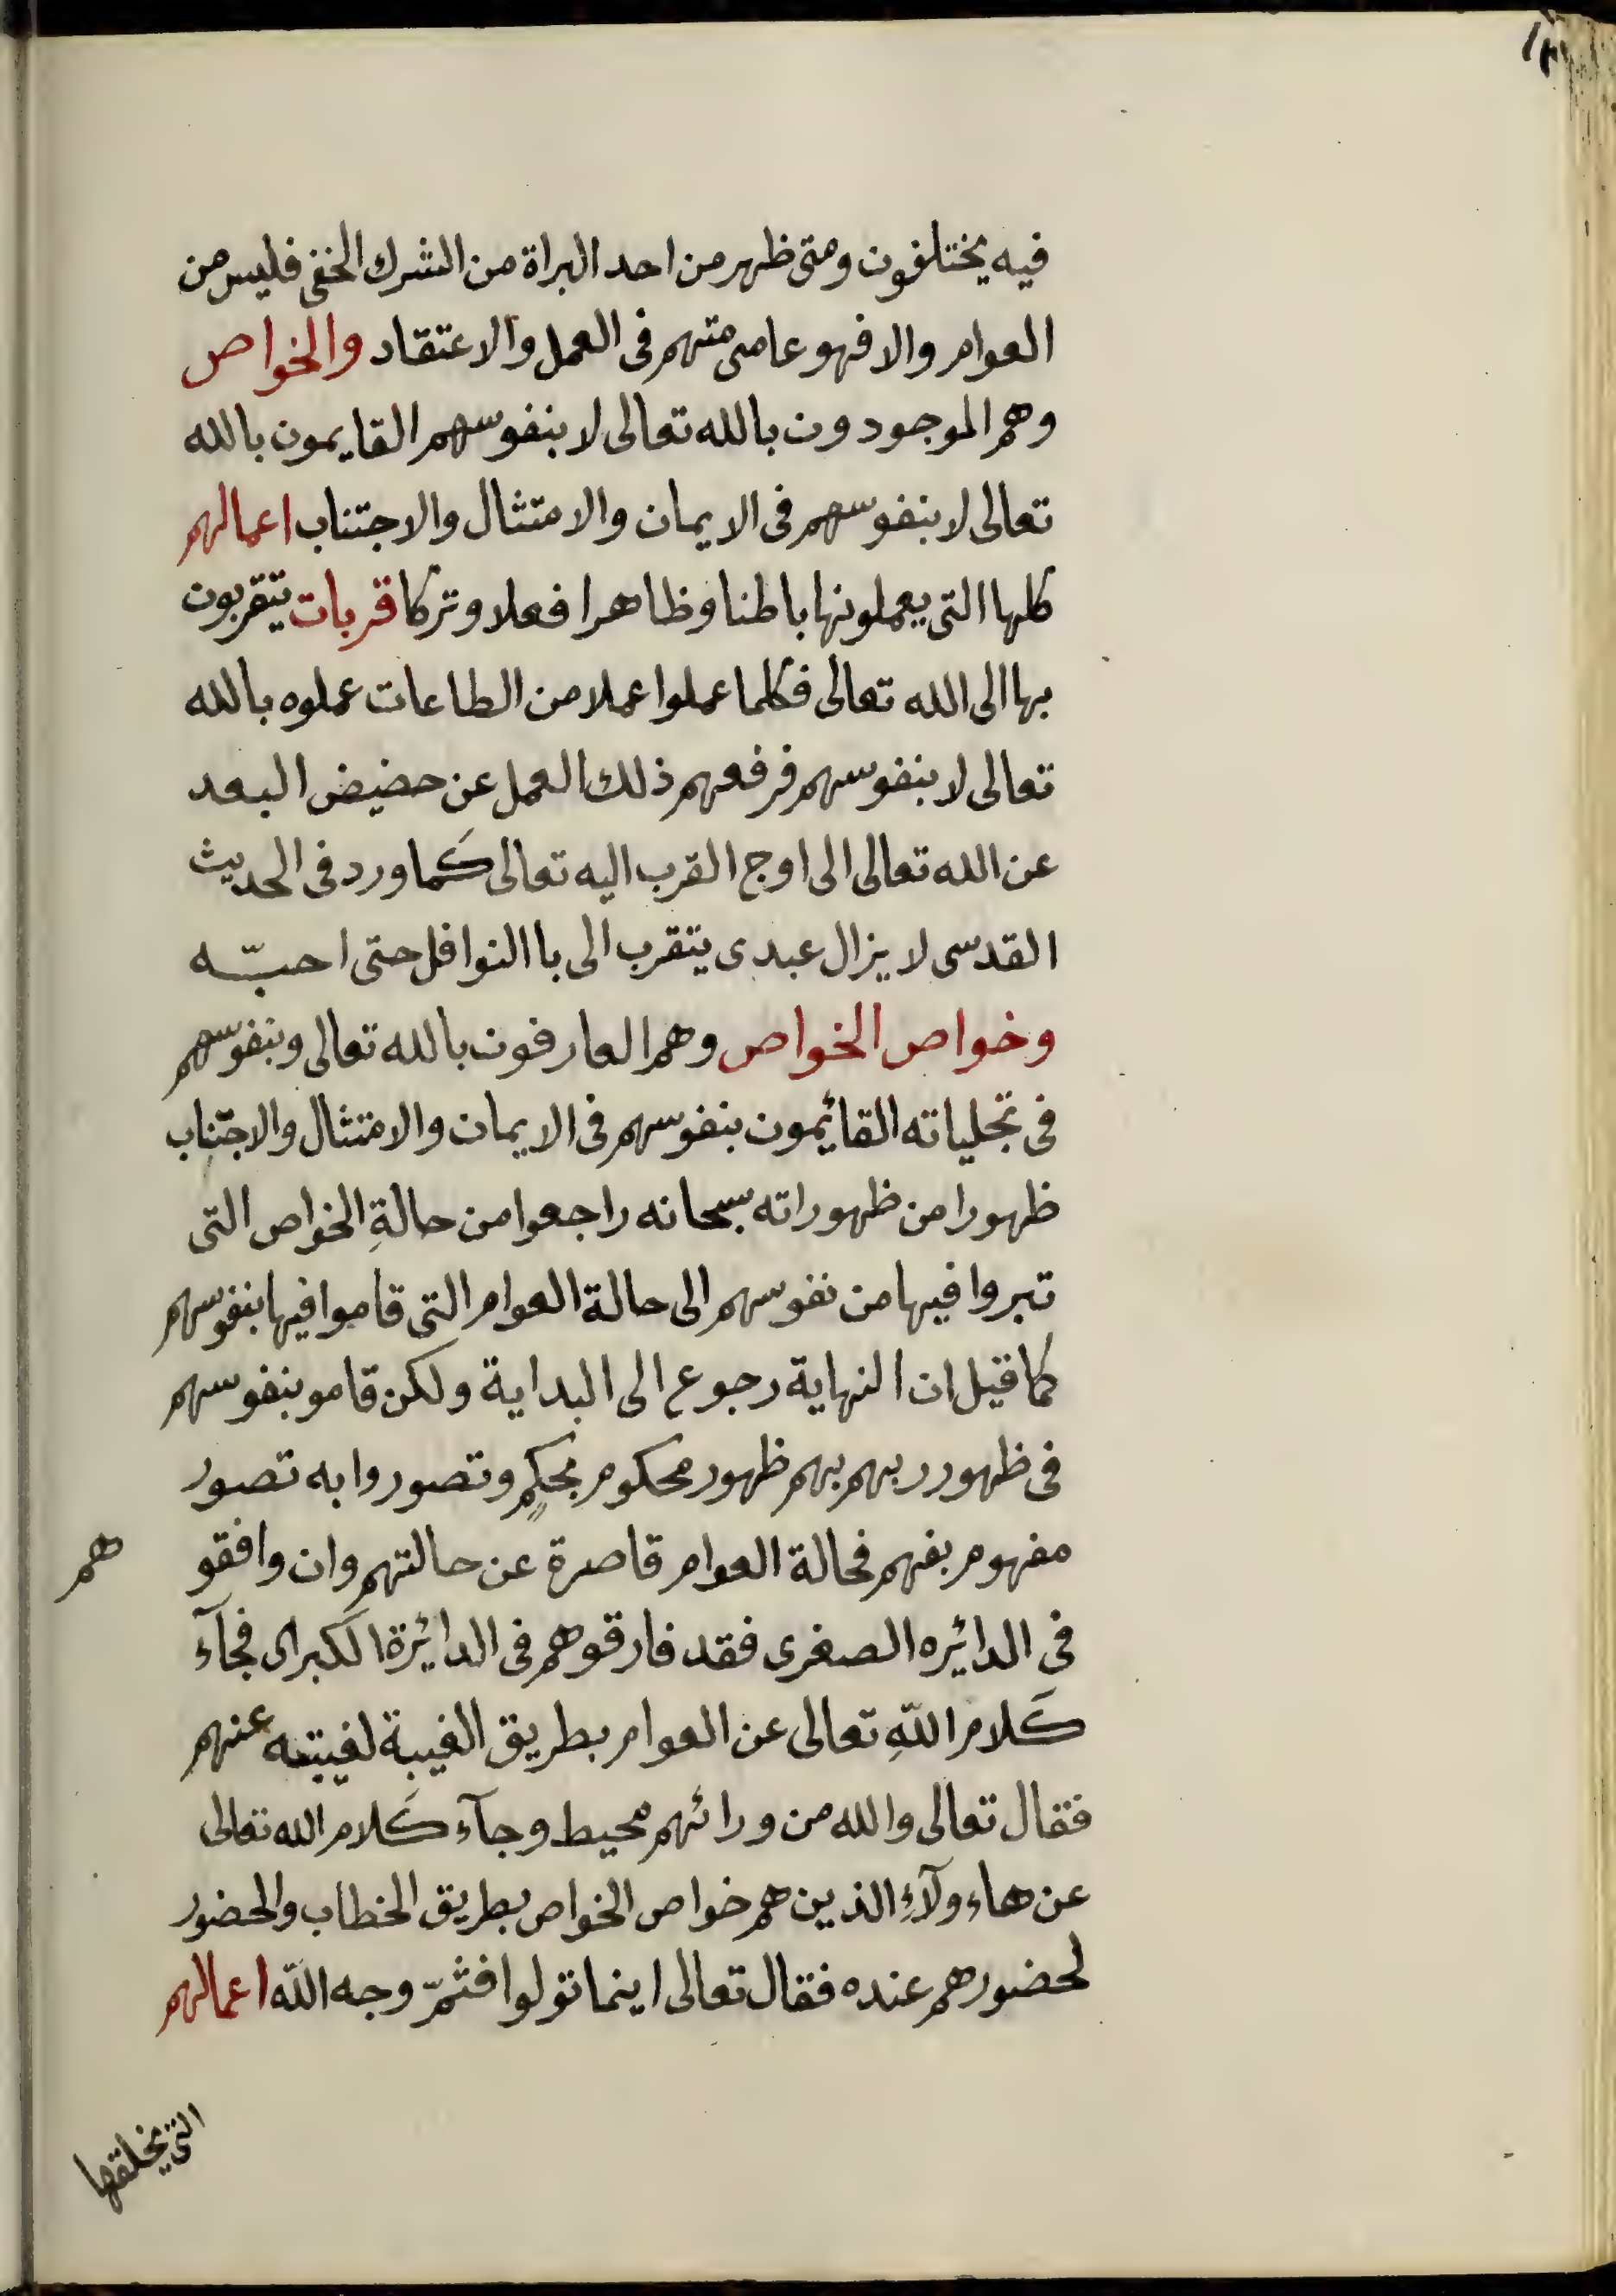 فيه يختلفون ومتى ظهر من احد البراة من الشرك الخفى فليس من
العوام والا فهو عامى متهم فى العمل والاعتقاد والخواص
وهم الموجودون بالله تعالى لا بنفوسهم القايمون بالله
تعالى لا بنفوسهم فى الايمان والامتثال والاجتناب اعمالهم
كلها التى يعملونها باطنا وظاهرا فعلا وتركا قربات يتقربون
بها الى الله تعالى فكلما عملوا عملا من الطاعات عملوه بالله
تعالى لا بنفوسهم فرفعهم ذلك العمل عن حضيض البعد
عن الله تعالى الى اوج القرب اليه تعالى كَما ورد فى الحديث
القدسى لا يزال عبدى يتقرب الى باالنوافل حتى احبّه
وخواص الخواص وهم العارفون بالله تعالى وبنفوسهم
فى تجلياته القائيمون بنفوسهم فى الايمان والامتثال والاجتناب
ظهورا من ظهوراته سبحانه راجعوا من حالةِ الخواص التى
تبروا فيها من نفوسهم الى حالة العوام التى قاموا فيها بنفوسهم
كما قيل ان النهاية رجوع الى البداية ولكن قامو بنفوسهم
فى ظهور ربهم بهم ظهور محكوم بحكمٍ وتصوروا به تصور
مفهوم بفهم فحالة العوام قاصرة عن حالتهم وان وافقو
هم
فى الدائيره الصغرى فقد فارقوهم فى الدائيرة الكَبراى فجآء
كَلام اللّهِ تعالى عن العوام بطريق الغيبة لغيبته عنهم
فقال تعالى والله من ورائهم محيط وجآء كَلام الله تعالى
عن هاءولآءِ الذين هم خواص الخواص بطريق الخطاب والحضور
لحضورهم عنده فقال تعالى اينما تولوا فثمّ وجه اللّه اعمالهم
التى يخلقها